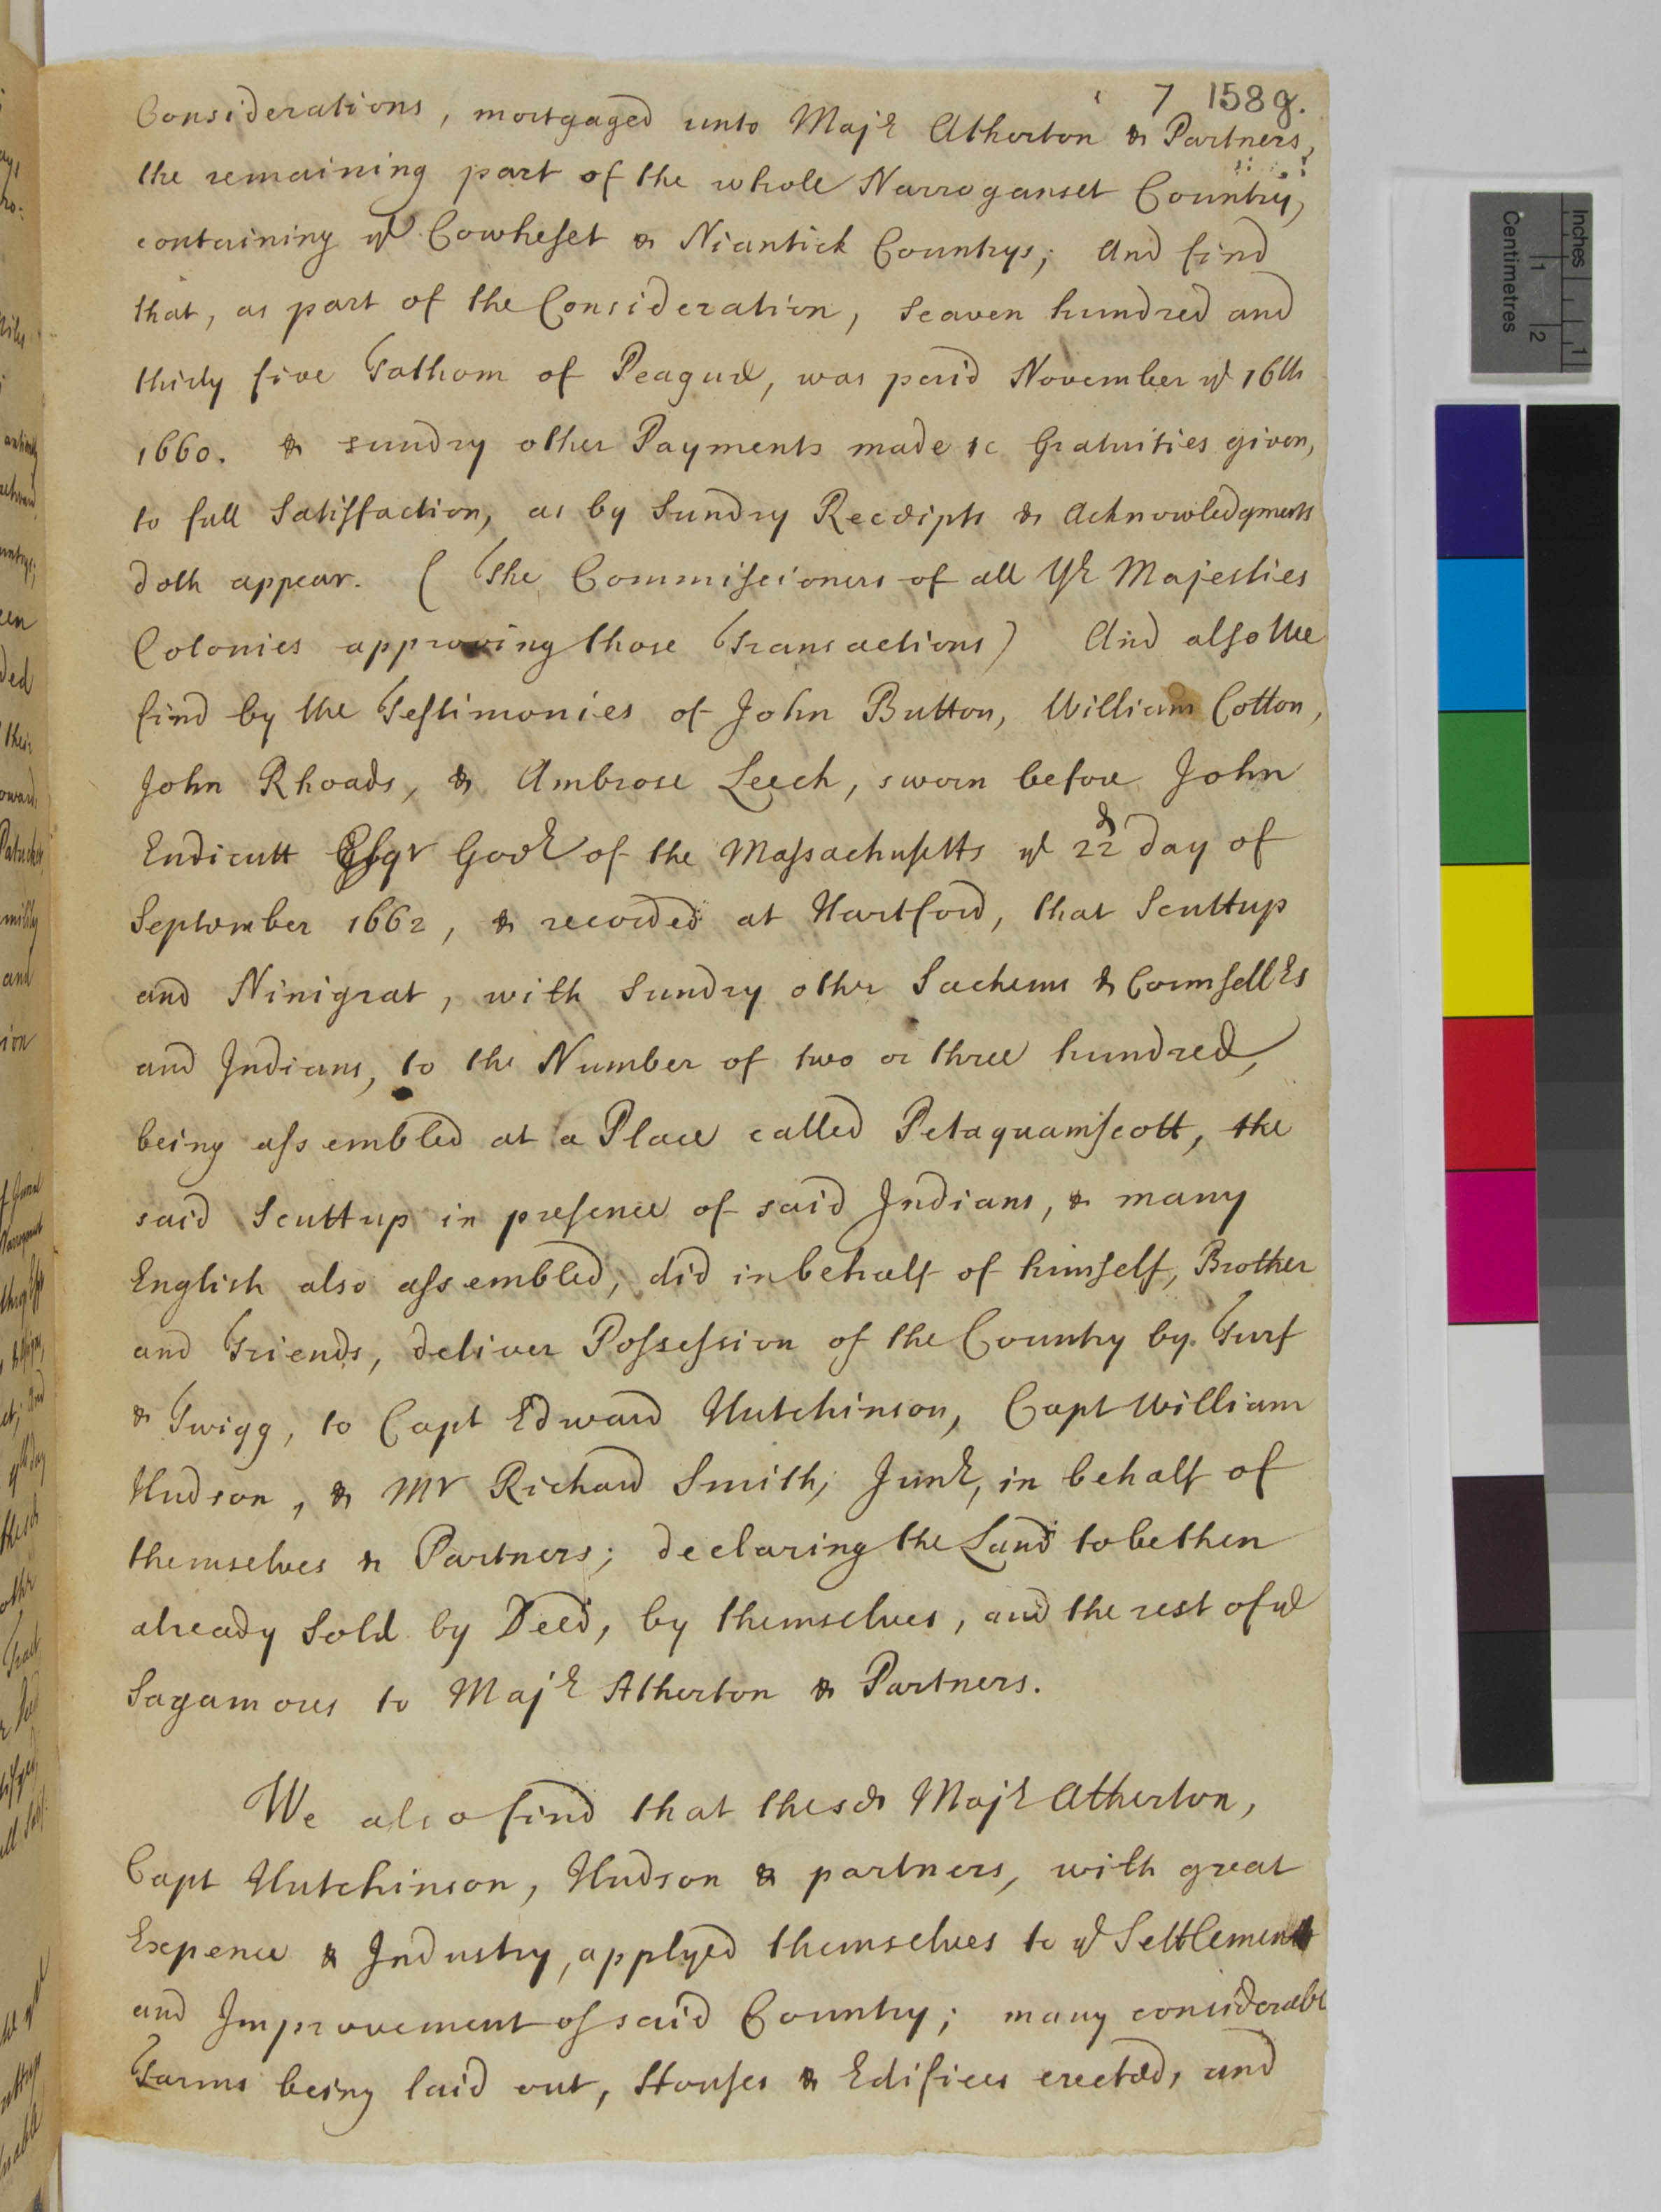 7 158g.
Considerations, mortgaged unto Majr Atherton & Partners,
the remaining part of the whole Narroganset Country,
containing ye Cowheset & Niantick Countrys; And find
that, as part of the Consideration, Seaven hundred and
thirty five Fathom of Peague, was paid November ye 16th
1660. & sundry other Payments made & Gratuities given,
to full Satisfaction, as by Sundry Receipts & Acknowledgments
doth appear. (The Commissioners of all Yr Majesties
Colonies approving those Transactions) And also We
find by the Testimonies of John Button, William Cotton,
John Rhoads, & Ambrose Leech, sworn before John
Endicutt Esqr Govr of the Massachusetts ye 22d day of
September 1662, & recorded at Hartford, that Scuttup
and Ninigrat, with Sundry othr Sachems & Counsellrs
and Indians, to the Number of two or three hundred,
being assembled at a Place called Petaquamscott, the
said Scuttup in presence of said Indians, & many
English also assembled, did in behalf of himself, Brother
and Friends, deliver Possession of the Country by Turf
& Twigg, to Capt Edward Hutchinson, Capt William
Hudson, & Mr Richard Smith, Junr, in behalf of
themselves & Partners; declaring the Land to be then
already Sold by Deed, by themselves, and the rest of ye
Sagamores to Majr Atherton & Partners.
We also find that the sd Majr Atherton,
Capt Hutchinson, Hudson & partners, with great
Expence & Industry, applyed themselves to ye Settlement
and Improvement of said Country; many considerable
Farms being laid out, Houses & Edifices erected, and
Inches
1
Centimetres
1 2